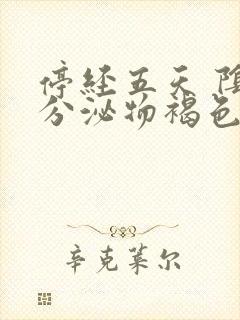 停经五天 阴
分泌物褐色
辛克莱尔